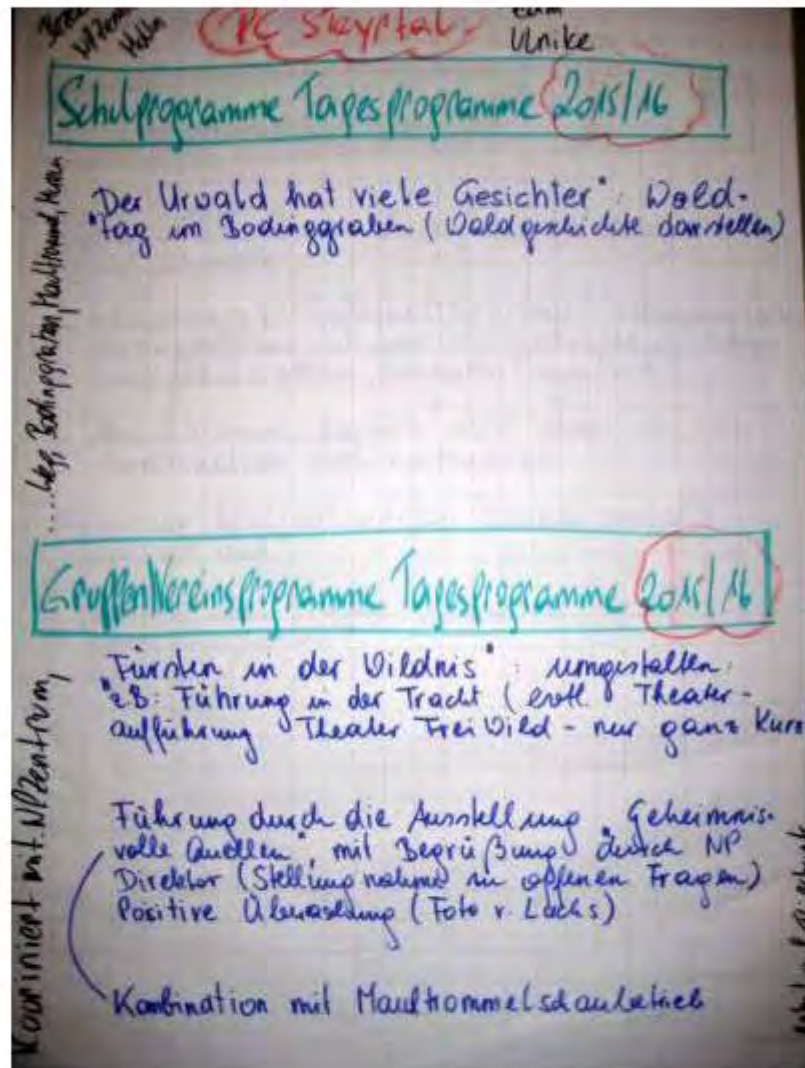 NPZentrum
Molln
PC Steyrtal
Ulrike
Schulprogramme Tagesprogramme 2015/16
"Der Urwald hat viele Gesichter": Wald-
tag im Bodinggraben (Waldgeschichte darstellen)
Gruppen/Vereinsprogramme Tagesprogramme 2015/16
"Fürsten in der Wildnis": umgestalten:
zB: Führung in der Tracht (evtl. Theater-
aufführung Theater FreiWild - nur ganz kurz
Führung durch die Ausstellung "Geheimnis-
volle Quellen" mit Begrüßung durch NP
Direktor (Stellungnahme zu offenen Fragen)
Positive Überraschung (Foto v. Luchs)
Kombination mit Maultrommelschaubetrieb
Bodinggraben,
Kooriniert mit NPZentrum,